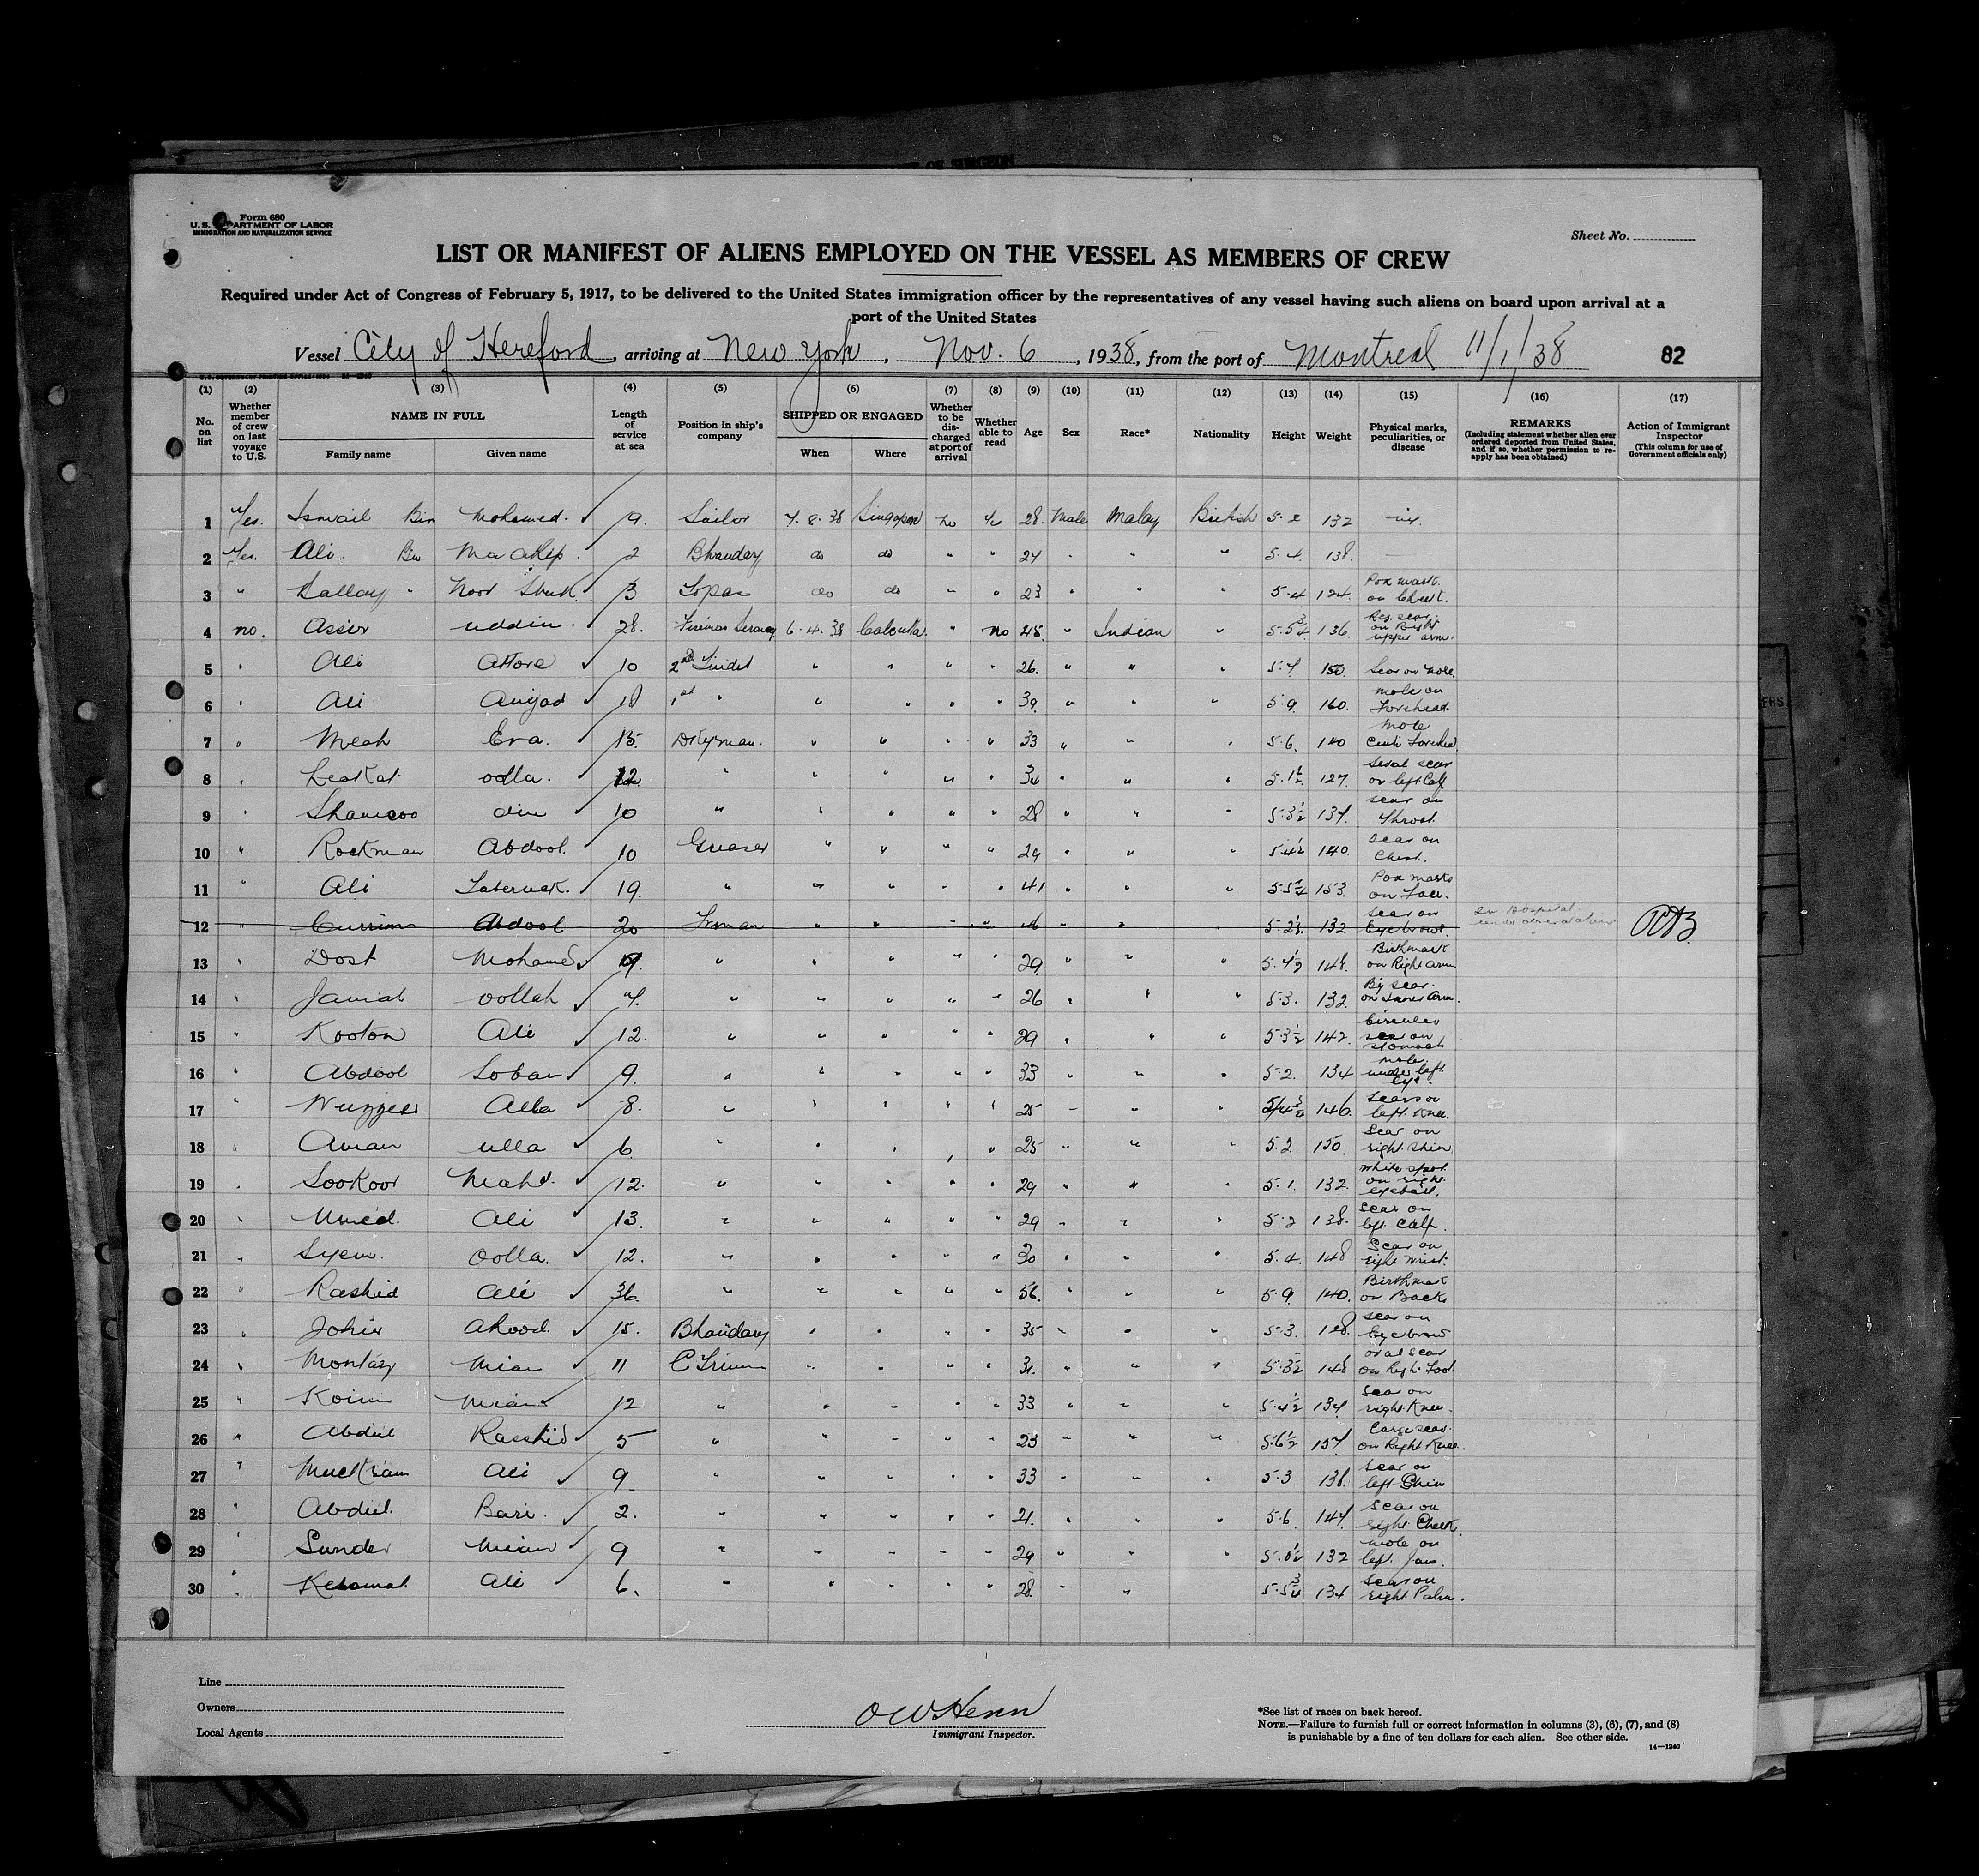 OF SURGEON
Form 680
U.S. DEPARTMENT OF LABOR
IMMIGRATION AND NATURALIZATION SERVICE
Sheet No.
LIST OR MANIFEST OF ALIENS EMPLOYED ON THE VESSEL AS MEMBERS OF CREW
Required under Act of Congress of February 5, 1917, to be delivered to the United States immigration officer by the representatives of any vessel having such aliens on board upon arrival at a
port of the United States
Vessel City of Hereford, arriving at New York, Nov. 6, 1938, from the port of Montreal 11/1/38 82
(1) (2) (3) (4) (5) (6) (7) (8) (9) (10) (11) (12) (13) (14) (15) (16) (17)
No. on list Whether member of crew on last voyage to U.S. NAME IN FULL Family name Given name Length of service at sea Position in ship's company SHIPPED OR ENGAGED When Where Whether to be discharged at port of arrival Whether able to read Age Sex Race* Nationality Height Weight Physical marks, peculiarities, or disease REMARKS (Including statement whether alien ever ordered deported from United States, and if so, whether permission to reapply has been obtained) Action of Immigrant Inspector (This column for use of Government officials only)
1 Yes. Ismail Bin Mohamed. 9. Sailor 7.8.38 Singapore no 28. Male Malay British 5.2 132
2 Yes. Ali. Bin 2 Bhandary do do " " 24 " " " 5.4 138. —
3 " Noor 3 Topas do do " " 23 " " " 5.4 124. Pox mark. on Chest.
4 no. Asser uddin. 28. Fireman Serang 6.4.38 Calcutta. " no 48. " Indian " 5.5¾ 136. on Right upper arm.
5 " Ali Attore 10 2nd Tindel " " " " 26. " " " 5.7 150. Scar on nose.
6 " Ali Amjad 18 1st " " " " " 39. " " " 5.9. 160. mole on Forehead.
7 " Meah Eva. 15. Dkyman. " " " " 33 " " " 5.6. 140 mole Forehead.
8 " Leakat odla. 12. " " " " " 34 " " " 5.1½ 127. scar on left Calf
9 " Shamsoo din 10 " " " " " 28 " " " 5.3½ 137. scar on Throat.
10 " Rockman Abdool. 10 Greaser " " " " 29 " " " 5.4½ 140. scar on Chest.
11 " Ali 19. " " " " " 41 " " " 153. Pox marks on Face.
12 " Currim Abdool 20 Frman " " " " " " " 5.2½ 132 scar on Eyebrows. In Hospital under observation
13 " Dost Mohamed " " " " " 29. " " " 5.4½ 148. Birthmark on Right arm
14 " Jamal oollah 7. " " " " " 26 " " " 5.3. 132. Big scar. on Arm.
15 " Kooton Ali 12. " " " " " 29 " " " 5.3½ 142. Circular scar on stomach
16 " Abdool Soban 9. " " " " " 33 " " " 5.2. 134 mole. under left eye.
17 " Wuzzeer Alla 8. " " " " " 25 " " " 146. scar on left Knee.
18 " Aman ulla 6. " " " " " 25 " " " 5.2 150. Scar on right shin
19 " Sookoor Mahd. 12. " " " " " 29 " " " 5.1. 132. white spot on right eyeball.
20 " Umed. Ali 13. " " " " " 29 " " " 5.2 138. scar on left Calf.
21 " Syem. Oolla. 12. " " " " " 30 " " " 5.4. 148 Scar on right wrist.
22 " Rashid Ali 36. " " " " " 56. " " " 5.9. 140. Birthmark on Back
23 " Johir Ahood. 15. Bhandary " " " " 35 " " " 5.3. 128. scar on Eyebrow
24 " Mian 11 " " " " " " " 5.3½ 148 oval scar on Right Foot.
25 " Mian 12 " " " " " 33 " " " 5.4½ 134 scar on right Knee.
26 " Abdul Rasshid 5 " " " " " 23 " " " 5.6½ 157. Large scar. on Right Knee.
27 " Muckram Ali 9 " " " " " 33 " " " 5.3 138. scar on left Shin
28 " Abdul. Bari. 2. " " " " " 21. " " " 5.6. 147. scar on right Cheek.
29 " Sunder Mian 9 " " " " " 29 " " " 5.0½ 132 mole on left Jaw.
30 " Ali 6. " " " " " 28. " " 5.5¾ 134 scar on right Palm.
Line
Owners
Local Agents
O W Henn
Immigrant Inspector.
*See list of races on back hereof.
NOTE.—Failure to furnish full or correct information in columns (3), (6), (7), and (8)
is punishable by a fine of ten dollars for each alien. See other side.
14—1240